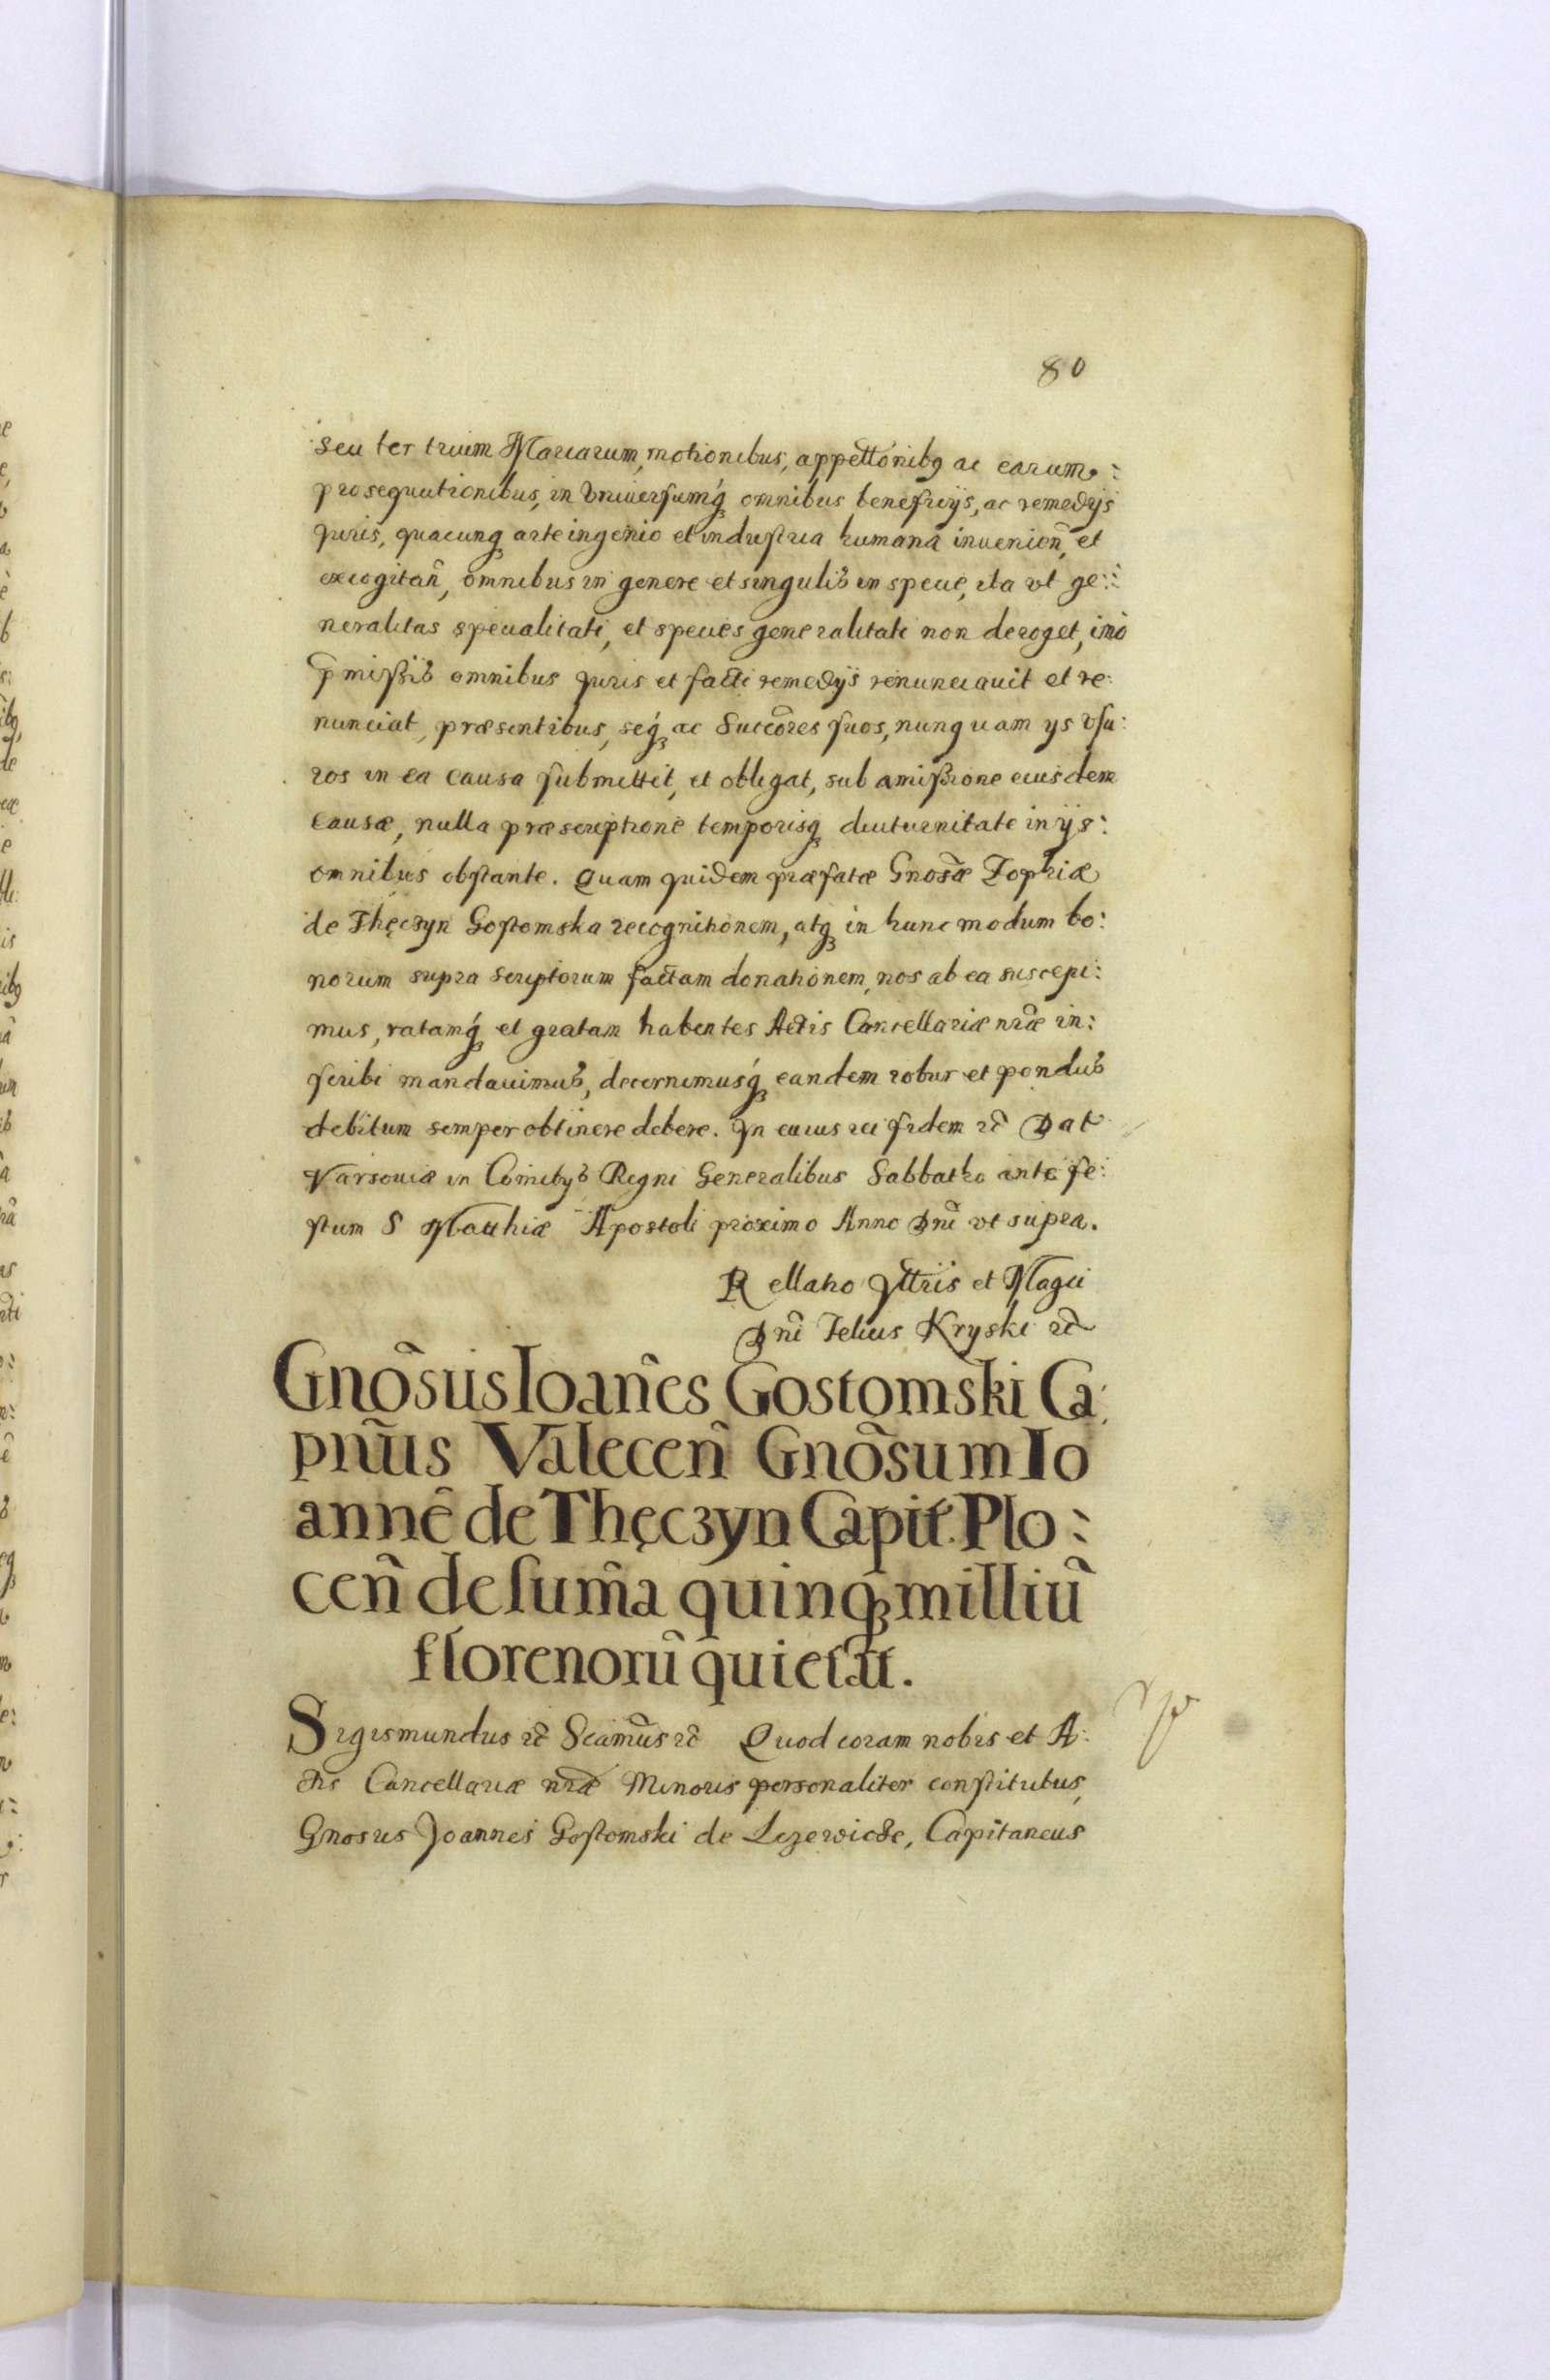 80
seu ter trium Marcarum, motionibus, appettõnibꝗ ac earum:
prosequutionibus, in Vniuersumq́ꝫ omnibus beneficijs, ac remedijs
Juris, quacunqꝫ arte ingenio et industria humana inuenien̄, et
excogitan̄, omnibus in genere et singulis in specie, ita vt ge:
neralitas specialitati, et species generalitati non deroget, imò
p̃missis omnibus Juris et facti remedijs renunciauit et re:
nunciat, præsentibus, seq́ꝫ ac Succõres suos, nunquam ys vsu:
ros in ea causa submittit, et obligat, sub amissione eiusdem
causæ, nulla præscriptione temporisqꝫ diuturnitate in ijs:
omnibus obstante. Quam quidem præfatæ Gnosæ̃ Zophiæ
de Thęczyn Gostomska recognitionem, atqꝫ in hunc modum bo:
norum supra scriptorum factam donationem, nos ab ea suscepi:
mus, ratamq́ꝫ et gratam habentes Actis Cancellariæ nr̃æ in:
scribi mandauimus, decernimusq́ꝫ eandem robur et pondus
debitum semper obtinere debere. In cuius rei fidem ꝛc̃ Dat
Varsouiæ in Comitijs Regni Generalibus Sabbatho ante fe:
stum S Matthiæ Apostoli proximo Anno Dnĩ vt supra.
Rellatio Illris et Magci
Dnĩ Felicis Kryski ꝛc̃
Gnõsus Ioañes Gostomski Ca:
pnẽus Valecen̄ Gnõsum Io
annẽ de Thęczyn Capit. Plo:
cen̄ de sum̃a quinqꝫ milliũ
florenorũ quietat.
Sigismundus ꝛc̃ Scamũs ꝛc̃ Quod coram nobis et A:
ctis Cancellariæ nr̃æ Minoris personaliter constitutus,
Gnosus Joannes Gostomski de Lezewicze, Capitaneus